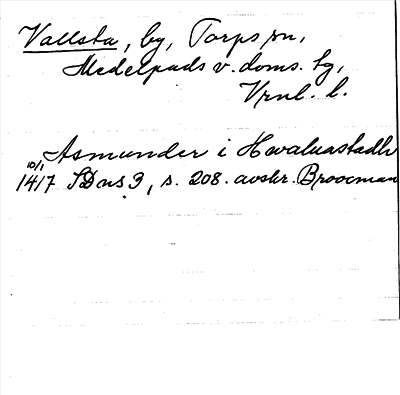 Vallsta, by, Torps sn,
Medelpads v. doms. tg,
Vrnl. l.
Asmunder i Hwaluastadh
10/1
1417 SD ns 3, s. 208. avskr. Broocman